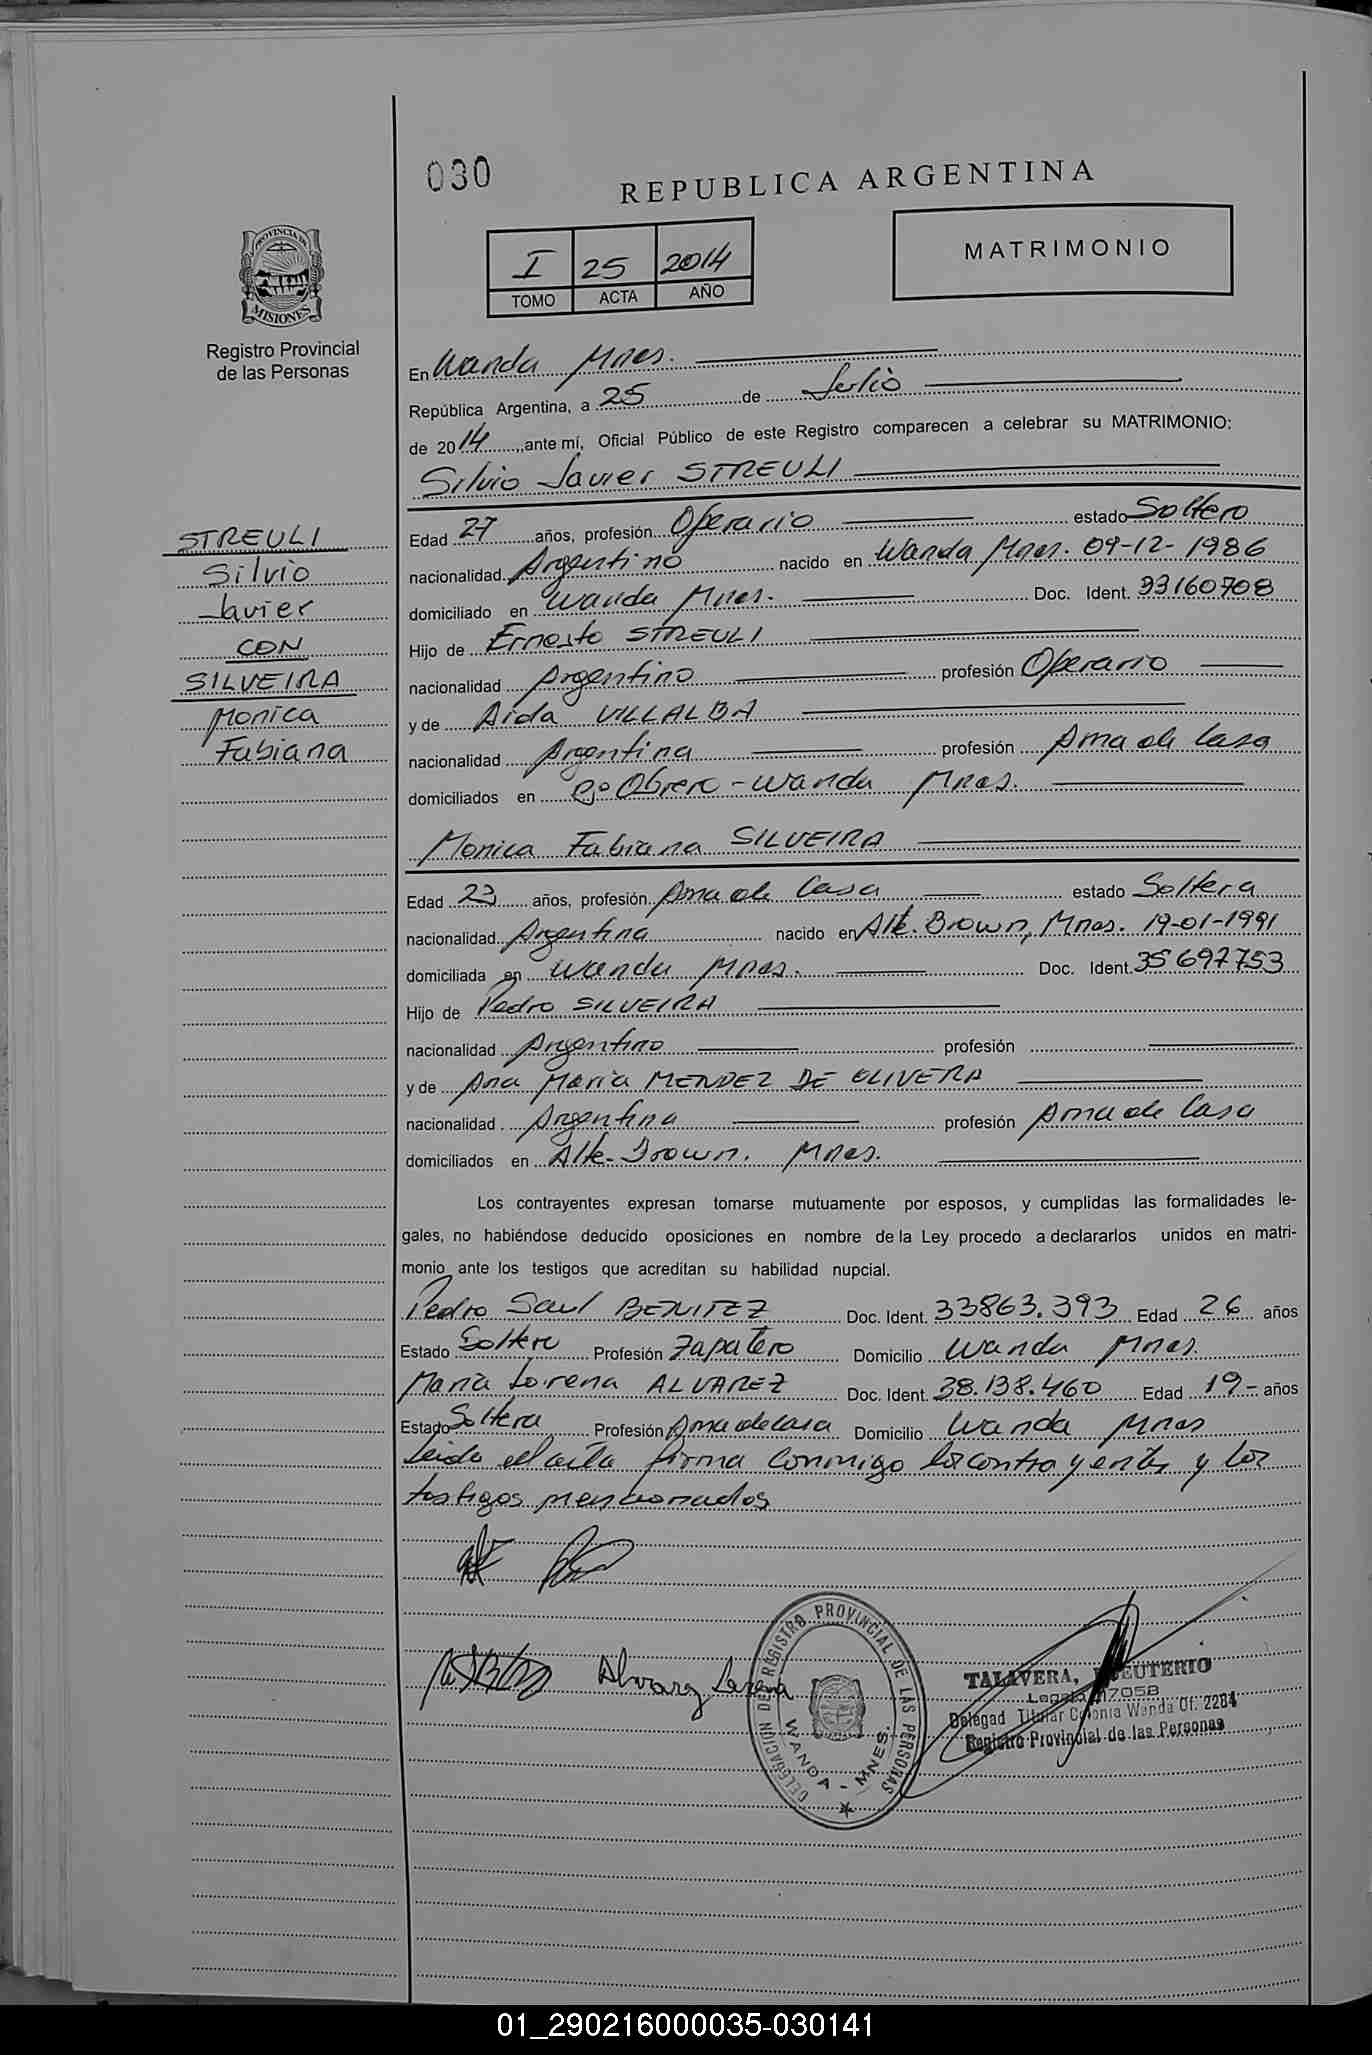 030
REPUBLICA ARGENTINA
I 25 2014
TOMO ACTA AÑO
MATRIMONIO
PROVINCIA DE
MISIONES
Registro Provincial
de las Personas
STREULI
Silvio
Javier
CON
SILVEIRA
Monica
Fabiana
En Wanda Mnes.
República Argentina, a 25 de Julio
de 2014, ante mí, Oficial Público de este Registro comparecen a celebrar su MATRIMONIO:
Silvio Javier STREULI
Edad 27 años, profesión Operario estado Soltero
nacionalidad Argentino nacido en Wanda Mnes. 09-12-1986
domiciliado en Wanda Mnes. Doc. Ident. 33160708
Hijo de Ernesto STREULI
nacionalidad Argentino profesión Operario
y de Aida VILLALBA
nacionalidad Argentina profesión Ama de Casa
domiciliados en Bº Obrero - Wanda Mnes.
Monica Fabiana SILVEIRA
Edad 23 años, profesión Ama de Casa estado Soltera
nacionalidad Argentina nacido en Alte. Brown, Mnes. 19-01-1991
domiciliada en Wanda Mnes. Doc. Ident. 35697753
Hijo de Pedro SILVEIRA
nacionalidad Argentino profesión
y de Ana Maria MENDEZ DE OLIVERA
nacionalidad Argentina profesión Ama de Casa
domiciliados en Alte. Brown. Mnes.
Los contrayentes expresan tomarse mutuamente por esposos, y cumplidas las formalidades le-
gales, no habiéndose deducido oposiciones en nombre de la Ley procedo a declararlos unidos en matri-
monio ante los testigos que acreditan su habilidad nupcial.
Pedro Saul BENITEZ Doc. Ident. 33863.393 Edad 26 años
Estado Soltero Profesión Zapatero Domicilio Wanda Mnes.
Maria Lorena ALVAREZ Doc. Ident. 38.138.460 Edad 19- años
Estado Soltera Profesión Ama de casa Domicilio Wanda Mnes
Leida el acta firma conmigo los contrayentes y los
testigos mencionados
Alvarez Lorena
DELEGACION DE REGISTRO PROVINCIAL DE LAS PERSONAS
WANDA - MNES.
TALAVERA, ELEUTERIO
Legajo 17058
Delegad Titular Colonia Wanda Of. 2284
Registro Provincial de las Personas
01_290216000035-030141